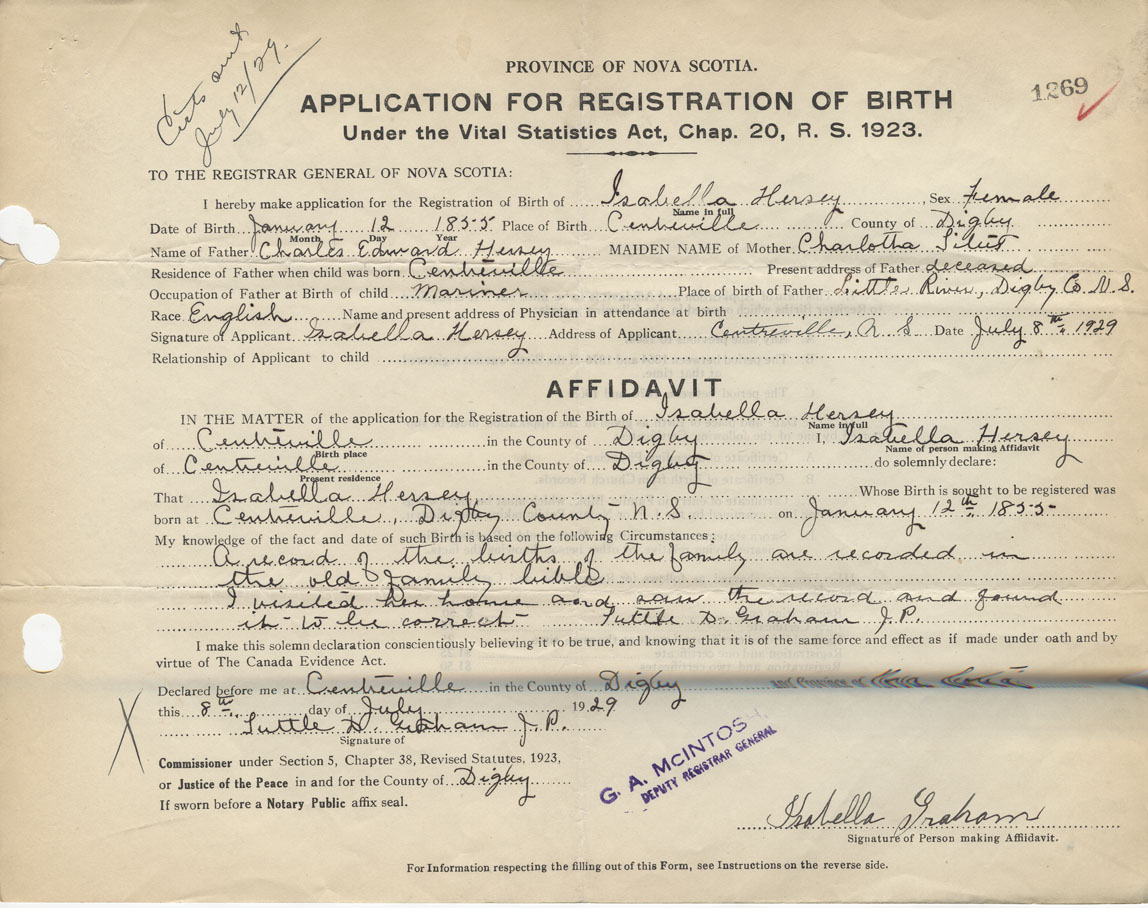 Certs sent
July 12/29.
PROVINCE OF NOVA SCOTIA.
1269
APPLICATION FOR REGISTRATION OF BIRTH
Under the Vital Statistics Act, Chap. 20, R. S. 1923.
TO THE REGISTRAR GENERAL OF NOVA SCOTIA:
I hereby make application for the Registration of Birth of Isabella Hersey, Sex Female
Name in full
Date of Birth January 12 1855 Place of Birth Centreville County of Digby
Month Day Year
Name of Father Charles Edward Hersey MAIDEN NAME of Mother Charlotha Titus
Residence of Father when child was born Centreville Present address of Father deceased
Occupation of Father at Birth of child Mariner Place of birth of Father Little River, Digby Co. N. S.
Race English Name and present address of Physician in attendance at birth
Signature of Applicant Isabella Hersey Address of Applicant Centreville, N S Date July 8th, 1929
Relationship of Applicant to child
AFFIDAVIT
IN THE MATTER of the application for the Registration of the Birth of Isabella Hersey
Name in full
of Centreville in the County of Digby I, Isabella Hersey
Birth place Name of person making Affidavit
of Centreville in the County of Digby do solemnly declare:
Present residence
That Isabella Hersey Whose Birth is sought to be registered was
born at Centreville, Digby County N. S. on January 12th, 1855
My knowledge of the fact and date of such Birth is based on the following Circumstances:
A record of the births of the family are recorded in
the old family bible
I visited her home and saw the record and found
it to be correct Tuttle D. Graham J. P.
I make this solemn declaration conscientiously believing it to be true, and knowing that it is of the same force and effect as if made under oath and by
virtue of The Canada Evidence Act.
Declared before me at Centreville in the County of Digby and Province of Nova Scotia
this 8th day of July 1929
Tuttle D. Graham J. P.
Signature of
Commissioner under Section 5, Chapter 38, Revised Statutes, 1923,
or Justice of the Peace in and for the County of Digby
If sworn before a Notary Public affix seal.
G. A. McINTOSH
DEPUTY REGISTRAR GENERAL
Isabella Graham
Signature of Person making Affidavit.
For Information respecting the filling out of this Form, see Instructions on the reverse side.